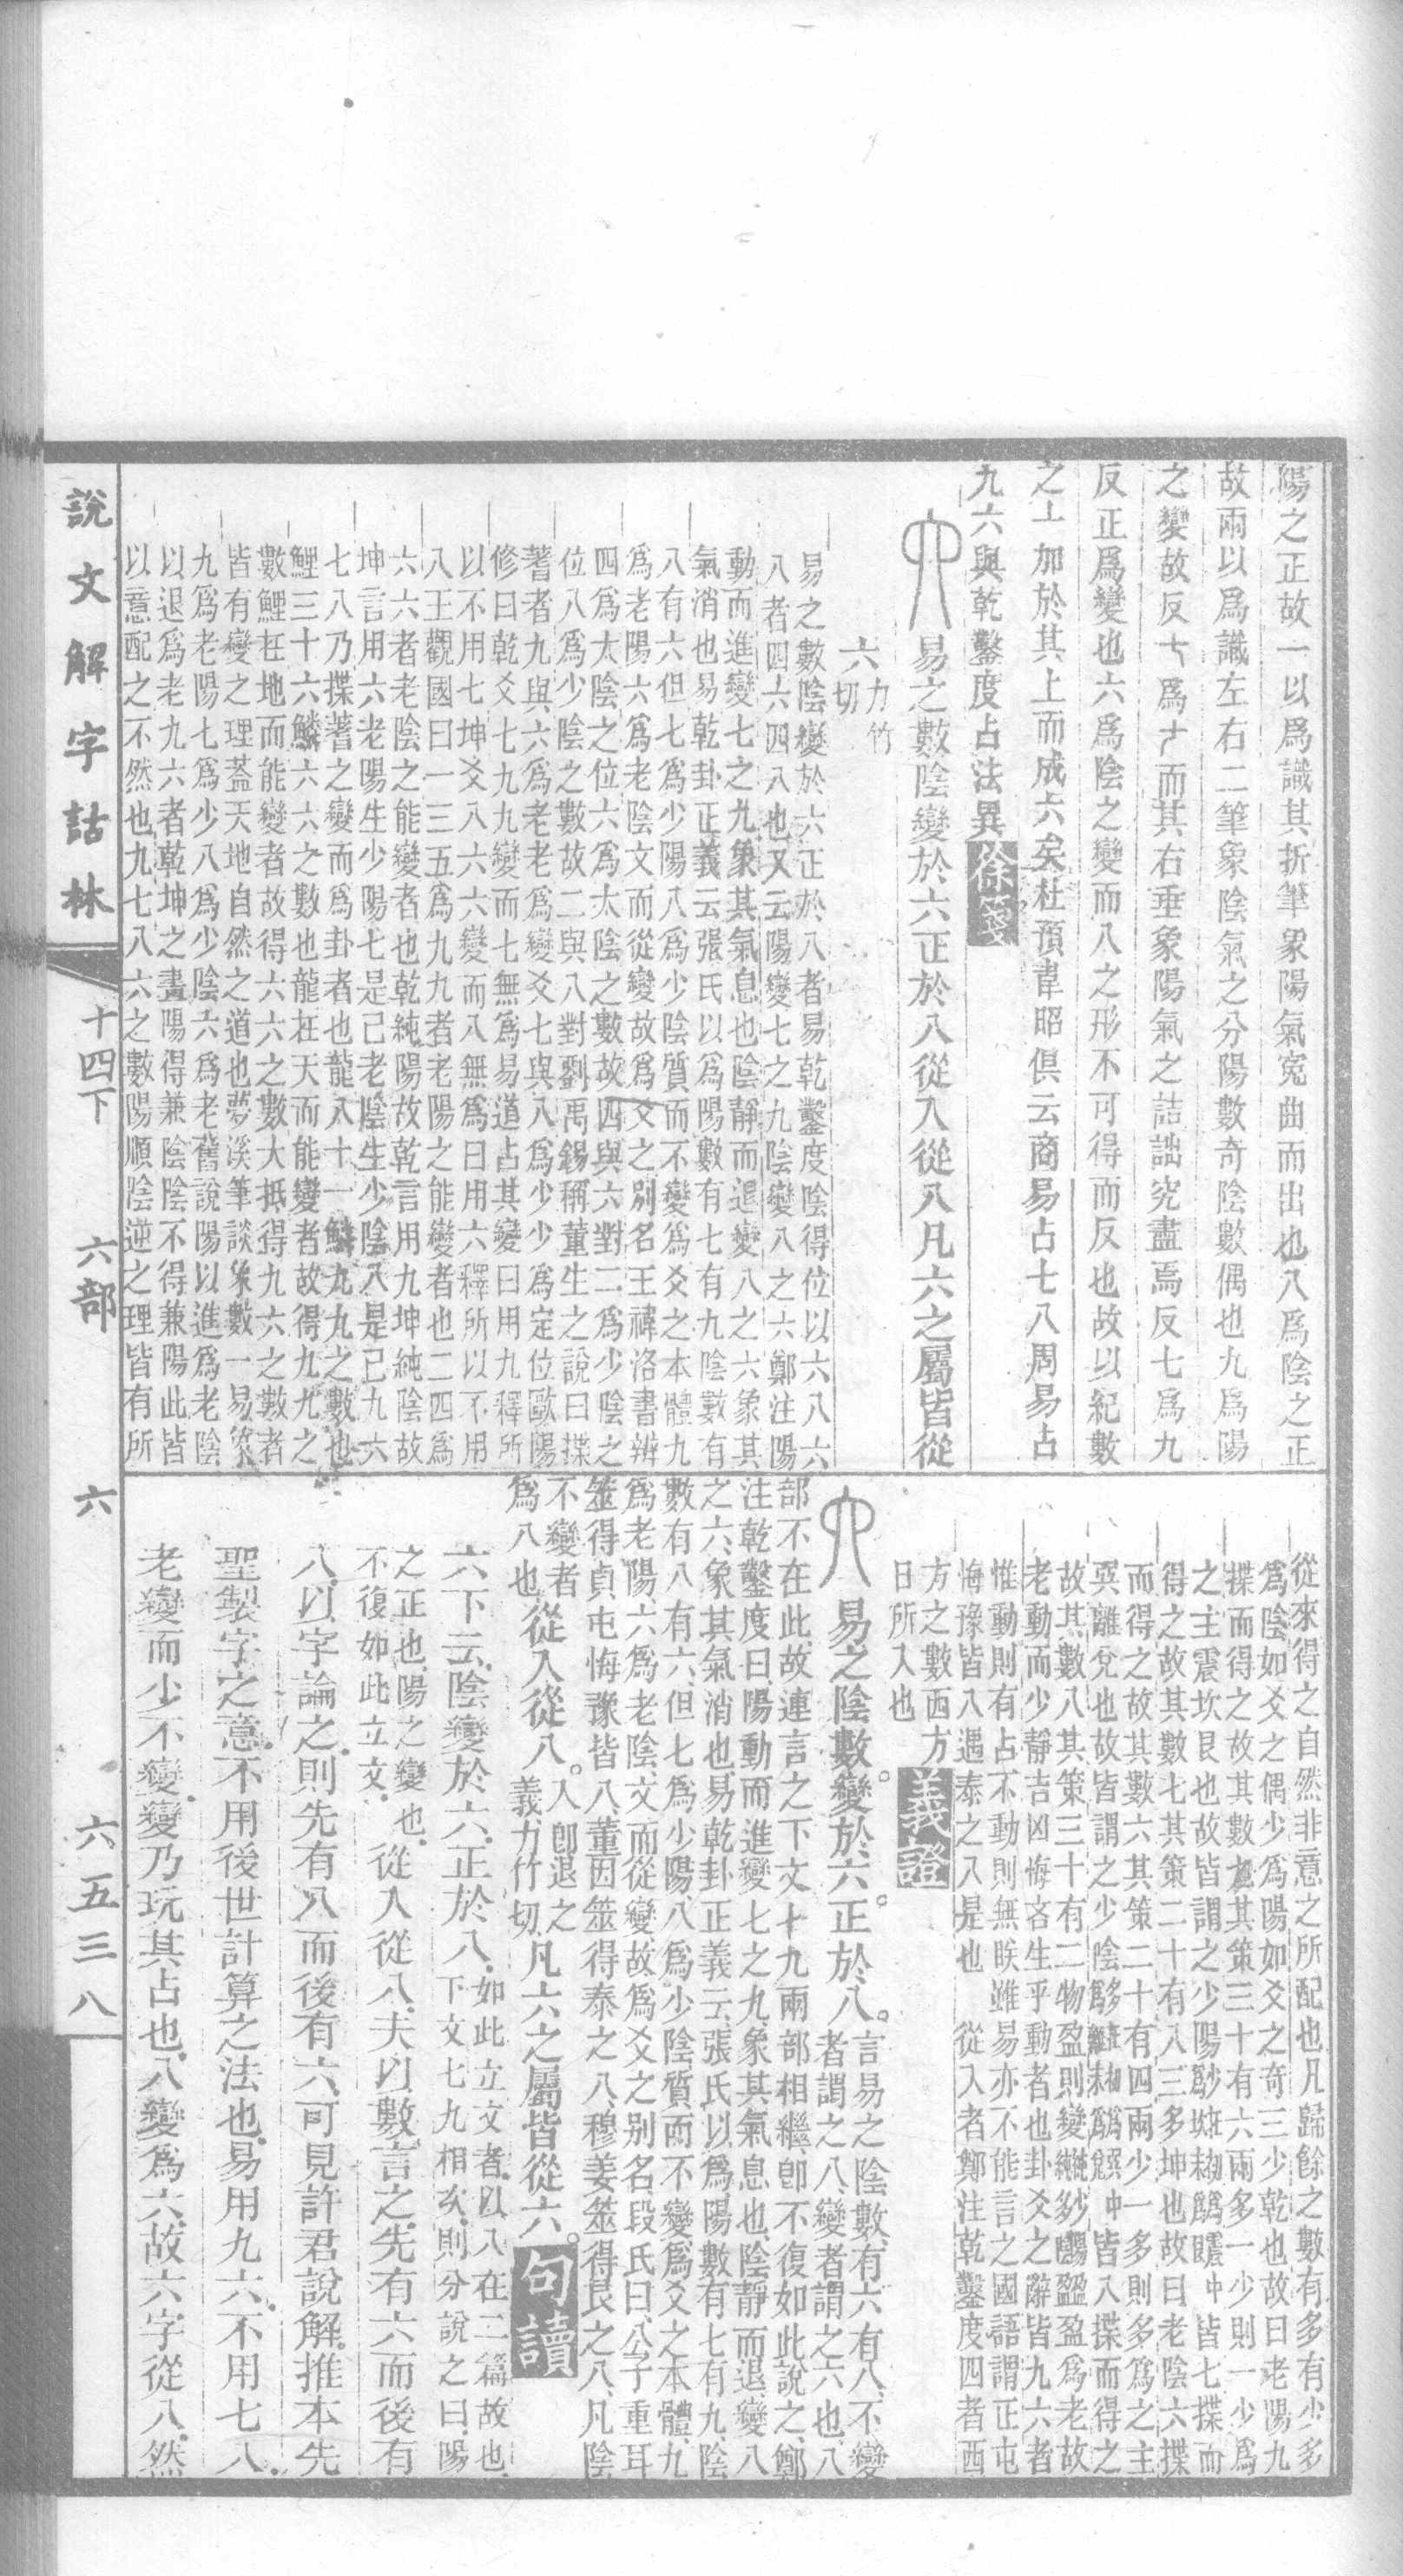 陽之正故一以爲識其折筆象陽氣寃曲而出也八爲陰之正
故兩以爲識左右二筆象陰氣之分陽數奇陰數偶也九爲陽
之變故反𠂇爲ナ而其右垂象陽氣之詰詘究盡焉反七爲九
反正爲變也六爲陰之變而八之形不可得而反也故以紀數
之丄加於其上而成六矣杜預韋昭俱云商易占七八周易占
九六與乾鑿度占法異徐箋
易之數陰變於六正於八從入從八凡六之屬皆從
六力竹
切
易之數陰變於六正於八者易乾鑿度陰得位以六八六
八者四六四八也又云陽變七之九陰變八之六鄭注陽
動而進變七之九象其氣息也陰靜而退變八之六象其
氣消也易乾卦正義云張氏以爲陽數有七有九陰數有
八有六但七爲少陽八爲少陰質而不變爲爻之本體九
爲老陽六爲老陰文而從變故爲爻之別名王禕洛書辨
四爲太陰之位六爲太陰之數故四與六對二爲少陰之
位八爲少陰之數故二與八對劉禹錫稱董生之說曰揲
蓍者九與六爲老老爲變爻七與八爲少少爲定位歐陽
修曰乾爻七九九變而七無爲易道占其變曰用九釋所
以不用七坤爻八六六變而八無爲曰用六釋所以不用
八王觀國曰一三五爲九九者老陽之能變者也二四爲
六六者老陰之能變者也乾純陽故乾言用九坤純陰故
坤言用六老陽生少陽七是已老陰生少陰八是已九六
七八乃揲蓍之變而爲卦者也龍八十一鱗九九之數也
鯉三十六鱗六六之數也龍在天而能變者故得九九之
數鯉在地而能變者故得六六之數大抵得九六之數者
皆有變之理葢天地自然之道也夢溪筆談象數一易筮
九爲老陽七爲少八爲少陰六爲老舊說陽以進爲老陰
以退爲老九六者乾坤之畫陽得兼陰陰不得兼陽此皆
以意配之不然也九七八六之數陽順陰逆之理皆有所
從來得之自然非意之所配也凡歸餘之數有多有少多
爲陰如爻之偶少爲陽如爻之奇三少乾也故曰老陽九
揲而得之故其數九其策三十有六兩多一少則一少爲
之主震坎艮也故皆謂之少陽皆七揲而
得之故其數七其策二十有八三多坤也故曰老陰六揲
而得之故其數六其策二十有四兩少一多則多爲之主
巽離兌也故皆謂之少陰皆八揲而得之
故其數八其策三十有二物盈則變盈爲老故
老動而少靜吉凶悔吝生乎動者也卦爻之辭皆九六者
惟動則有占不動則無眹雖易亦不能言之國語謂正屯
悔豫皆八遇泰之八是也　從入者鄭注乾鑿度四者西
方之數西方
日所入也義證
易之陰數。變於六。正於八。言易之陰數有六有八不變
者謂之八變者謂之六也八
部不在此故連言之下文十九兩部相繼卽不復如此說之鄭
注乾鑿度曰陽動而進變七之九象其氣息也陰靜而退變八
之六象其氣消也易乾卦正義云張氏以爲陽數有七有九陰
數有八有六但七爲少陽八爲少陰質而不變爲爻之本體九
爲老陽六爲老陰文而從變故爲爻之別名段氏曰公子重耳
筮得貞屯悔豫皆八董因筮得泰之八穆姜筮得艮之八凡陰
不變者
爲八也從入從八。入卽退之
義力竹切凡六之屬皆從六。句讀
六下云陰變於六正於八如此立文者以八在二篇故也
下文七九相次則分說之曰陽
之正也陽之變也
不復如此立文從入從八夫以數言之先有六而後有
八以字論之則先有八而後有六可見許君說解推本先
聖製字之意不用後世計算之法也易用九六不用七八
老變而少不變變乃玩其占也八變爲六故六字從八然
說文解字詁林
十四下
六部
六
六五三八